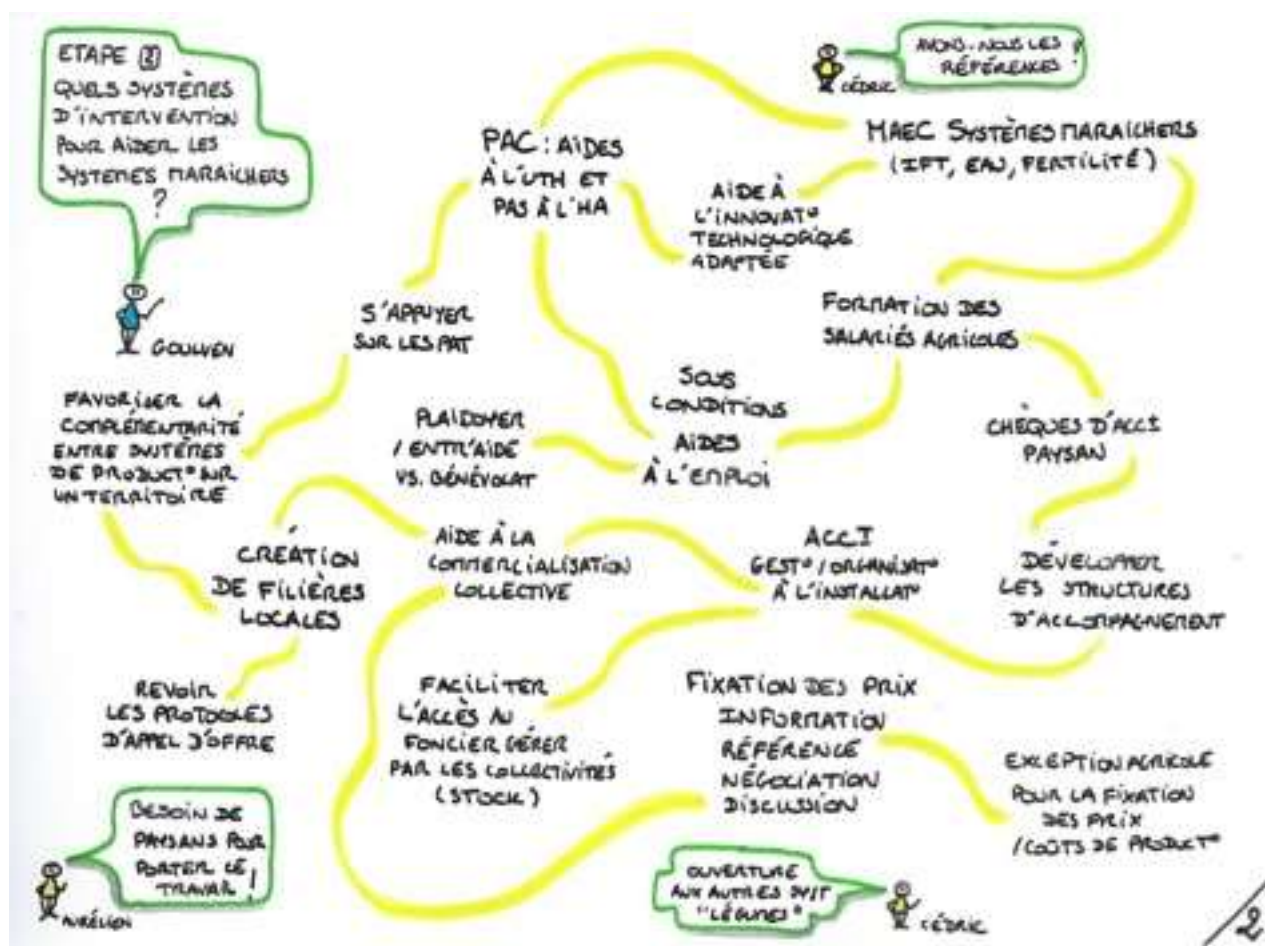 ETAPE 2
QUELS SYSTÈMES
D'INTERVENTION
POUR AIDER LES
SYSTEMES MARAICHERS
?
GOULVEN
AVONS-NOUS LES
RÉFÉRENCES !
CÉDRIC
PAC : AIDES
À L'UTH ET
PAS À L'HA
MAEC SYSTÈMES MARAICHERS
(IFT, EAU, FERTILITÉ)
AIDE À
L'INNOVAT°
TECHNOLOGIQUE
ADAPTÉE
S'APPUYER
SUR LES PAT
FORMATION DES
SALARIÉS AGRICOLES
FAVORISER LA
COMPLÉMENTARITÉ
ENTRE
DE PRODUCT° SUR
UN TERRITOIRE
PLAIDOYER
/ ENTR'AIDE
VS. BÉNÉVOLAT
SOUS
CONDITIONS
AIDES
À L'EMPLOI
CHÈQUES D'ACCI
PAYSAN
CRÉATION
DE FILIÈRES
LOCALES
AIDE À LA
COMMERCIALISATION
COLLECTIVE
ACCI
GEST° / ORGANISAT°
À L'INSTALLAT°
DÉVELOPPER
LES STRUCTURES
D'ACCOMPAGNEMENT
REVOIR
LES PROTOCOLES
D'APPEL D'OFFRE
FACILITER
L'ACCÈS AU
FONCIER GÉRER
PAR LES COLLECTIVITÉS
(STOCK)
FIXATION DES PRIX
INFORMATION
RÉFÉRENCE
NÉGOCIATION
DISCUSSION
EXCEPTION AGRICOLE
POUR LA FIXATION
DES PRIX
/COÛTS DE PRODUCT°
BESOIN DE
PAYSANS POUR
PORTER LE
TRAVAIL !
AURÉLIEN
OUVERTURE
AUX AUTRES SYST
"LÉGUMES"
CÉDRIC
/2